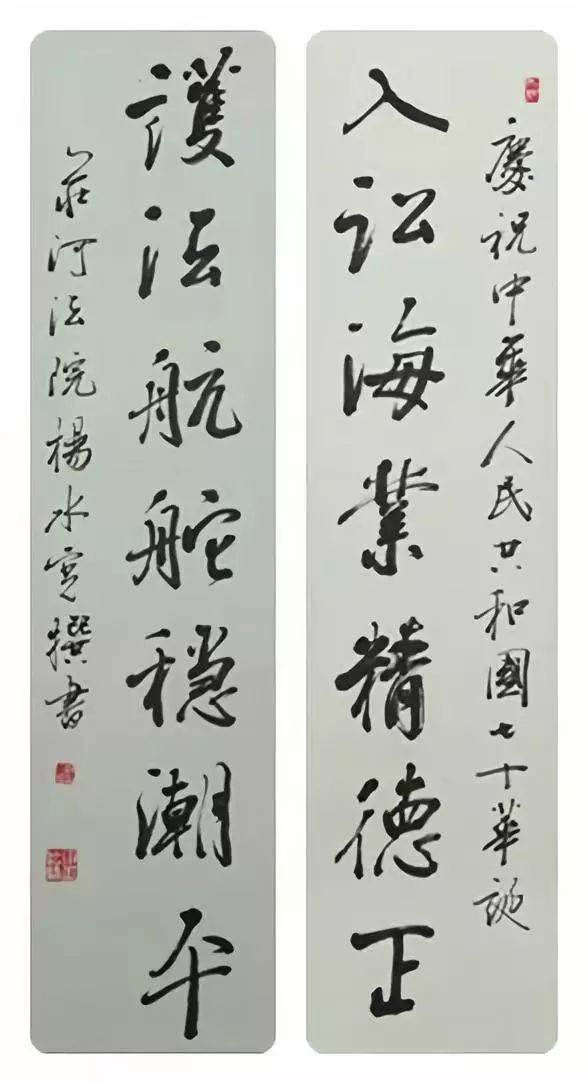 慶祝中華人民共和國七十華誕
入訟海業精德正
護法航舵穩潮平
莊河法院楊水寬撰書